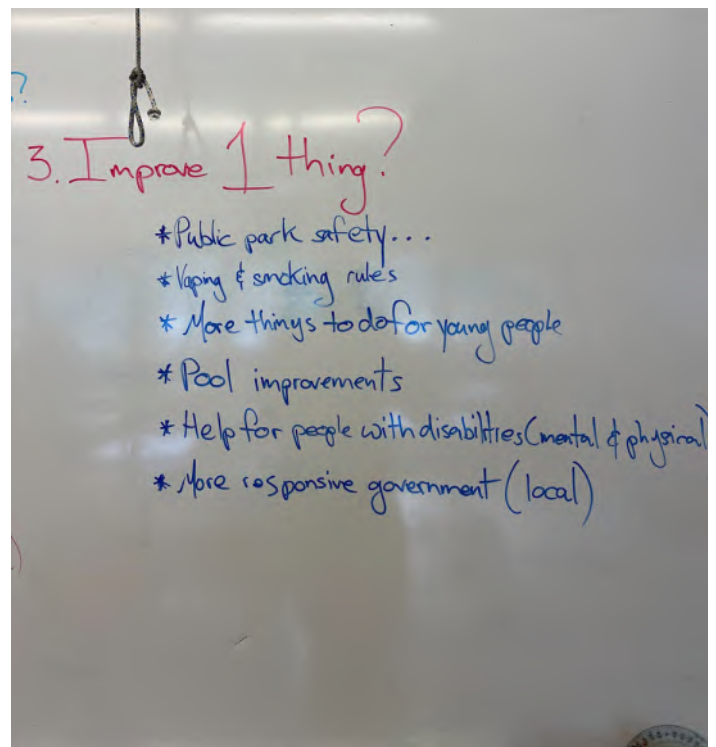 ?
3. Improve 1 thing?
*Public park safety...
*Vaping & smoking rules
*More things to do for young people
*Pool improvements
*Help for people with disabilities (mental & physical)
*More responsive government (local)
)